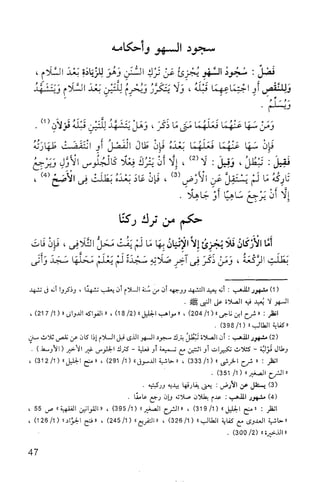 سجود السهو وأحكامه
فَصْلٌ : سُجُودُ السَّهْوِ يُجْزِئُ عَنْ تَرْكِ السُّنَنِ وَهُوَ لِلزِّيَادَةِ بَعْدَ السَّلَامِ ،
وَلِلنَّقْصِ أَوِ اجْتِمَاعِهِمَا قَبْلَهُ ، وَلَا يَتَكَرَّرُ وَيُحْرِمُ لِلَّتَيْنِ بَعْدَ السَّلَامِ وَيَتَشَهَّدُ
وَيُسَلِّمُ .
وَمَنْ سَهَا عَنْهُمَا فَعَلَهُمَا مَتَى مَا ذَكَرَ ، وَهَلْ يَتَشَهَّدُ لِلَّتَيْنِ قَبْلَهُ قَوْلَانِ (١) .
فَإِنْ سَهَا عَنْهُمَا فَعَلَهُمَا بَعْدَهُ فَإِنْ طَالَ الْفَصْلُ أَوِ انْتَقَضَتْ طَهَارَتُهُ
فَقِيلَ : تَبْطُلُ ، وَقِيلَ : لَا (٢) ، إِلَّا أَنْ يَتْرُكَ فِعْلًا كَالْجُلُوسِ الْأَوَّلِ وَيَرْجِعُ
تَارِكُهُ مَا لَمْ يَسْتَقِلَّ عَنِ الْأَرْضِ (٣) ، فَإِنْ عَادَ بَعْدَهُ بَطَلَتْ فِى الْأَصَحِّ (٤) ،
إِلَّا أَنْ يَرْجِعَ سَاهِيًا أَوْ جَاهِلًا .
حكم من ترك ركنًا
أَمَّا الْأَرْكَانُ فَلَا يُجْزِئُ إِلَّا الْإِتْيَانُ بِهَا مَا لَمْ يَفُتْ مَحَلُّ التَّلَافِى ، فَإِنْ فَاتَ
بَطَلَتِ الرَّكْعَةُ ، وَمَنْ ذَكَرَ فِى آخِرِ صَلَاتِهِ سَجْدَةً لَمْ يَعْلَمْ مَحَلَّهَا سَجَدَ وَأَتَى
(1) مشهور المذهب : أنه يعيد التشهد ووجهه أن من سُنة السلام أن يعقب تشهدًا ، وذكروا أنه فى تشهد
السهو لا يُعيد فيه الصلاة على النبى ﷺ .
انظر : « شرح ابن ناجى » (1/ 204) ، « مواهب الجليل » (2/ 18) ، « الفواكه الدوانى » (1/ 217) ،
« كفاية الطالب » (1/ 398) .
(2) مشهور المذهب : أن الصلاة تَبْطُلُ بترك سجود السهو الذى قبل السلام إذا كان عن نقص ثلاث سنن
وطال قوْليَّة - كثلاث تكبيرات أو اثنتين مع تسميعة أو فعلية - كترك الجلوس غير الأخير (الأوسط) .
انظر : « شرح الخرشى » (1/ 333) ، « حاشية الدسوقى » (1/ 291) ، « منح الجليل » (1/ 312) ،
« الشرح الصغير » (1/ 351) .
(3) يستقل عن الأرض : يعنى يفارقها بيديه وركبتيه .
(4) مشهور المذهب : عدم بطلان صلاته وإن رجع عامدًا .
انظر : « منح الجليل » (1/ 319) ، « الشرح الصغير » (1/ 395) ، « القوانين الفقهية » ص 55 ،
« حاشية العدوى مع كفاية الطالب » (1/ 326) ، « التفريع » (1/ 245) ، « فتح الجوَّاد » (1/ 126) ،
« الذخيرة » (2/ 300) .
47